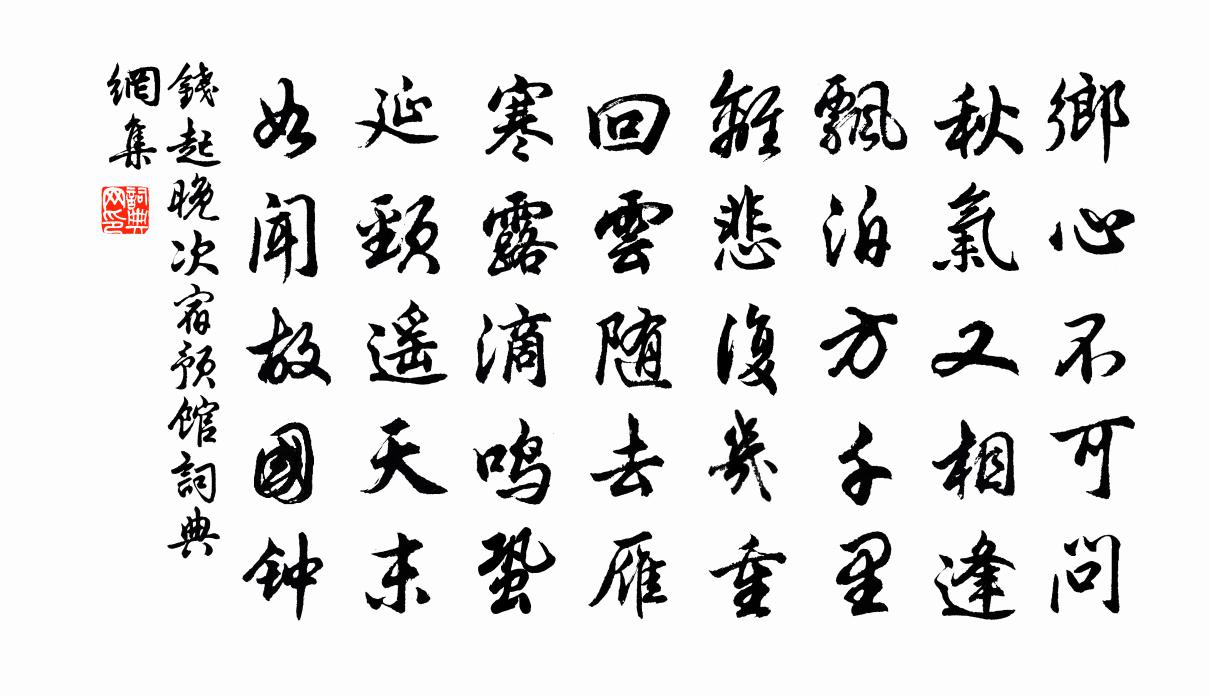 鄉心不可問
秋氣又相逢
飄泊方千里
離悲復幾重
回雲随去雁
寒露滴鸣蛩
延頸遥天末
如闻故國钟
錢起晚次宿预館詞典
網集
詞典
网印